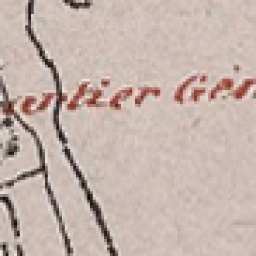 uartier Gén